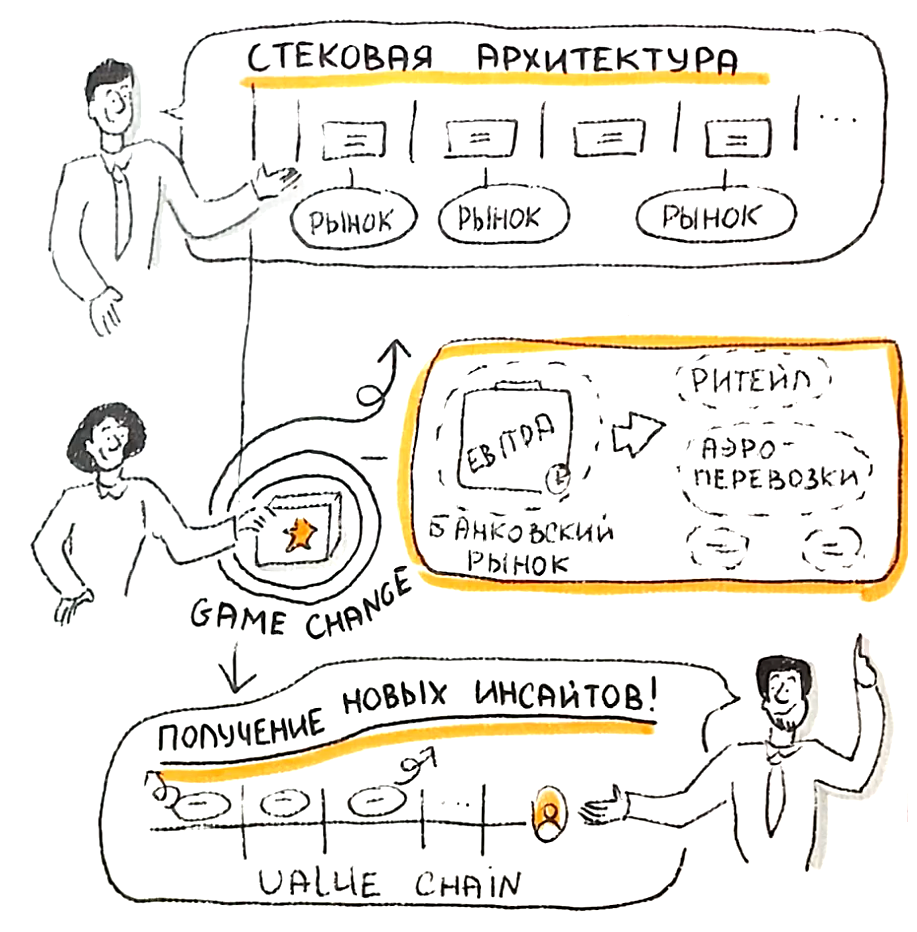 СТЕКОВАЯ АРХИТЕКТУРА
...
РЫНОК РЫНОК РЫНОК
EBITDA
РИТЕЙЛ
АЭРО-
ПЕРЕВОЗКИ
БАНКОВСКИЙ
РЫНОК
GAME CHANGE
ПОЛУЧЕНИЕ НОВЫХ ИНСАЙТОВ!
...
VALUE CHAIN